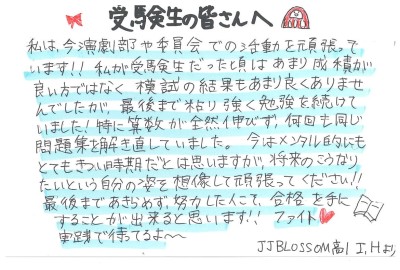 受験生の皆さんへ
私は、今演劇部や委員会での活動を頑張って
います!! 私が受験生だった頃は あまり成績が
良い方ではなく 模試の結果もあまり良くありませ
んでしたが、最後まで粘り強く勉強を続けて
いました! 特に算数が全然伸びず、何回も同じ
問題集を解き直していました。 今はメンタル的にも
とてもきつい時期だとは思いますが、将来のこうなり
たいという自分の姿を想像して頑張ってください!!
最後まであきらめず、努力した人こそ、合格を手に
することが出来ると思います!! ファイト
実践で待ってるよ〜〜
JJBLOSSOM高1 I,Hより